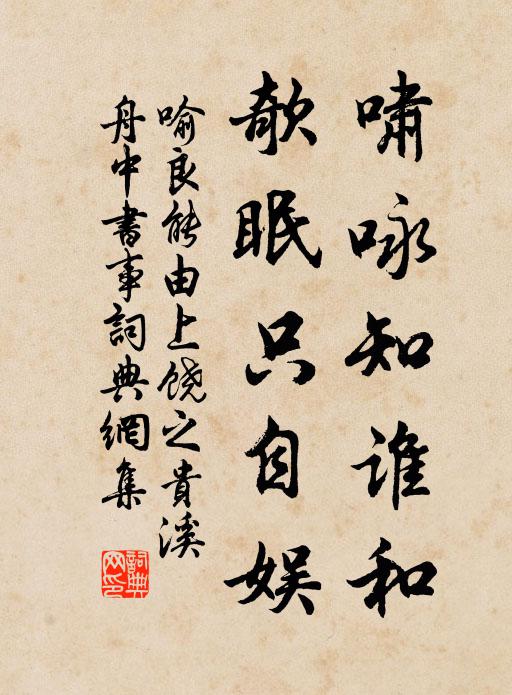 啸咏知谁和
欹眠只自娱
喻良能由上饶之貴溪
舟中書事詞典網集
詞典网印